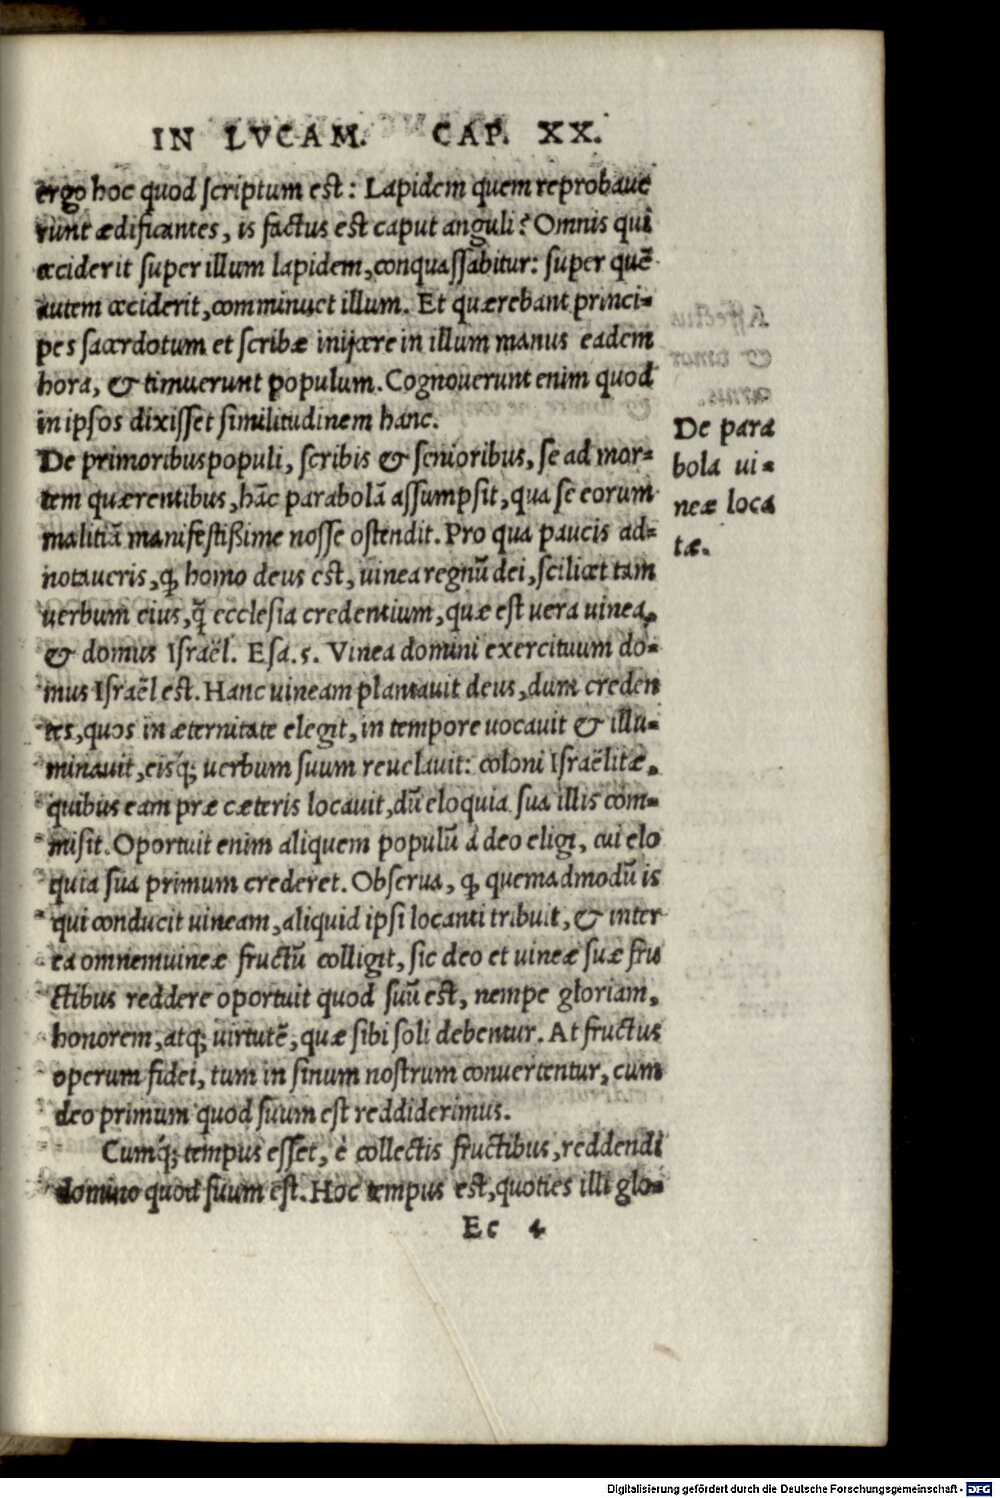 IN LVCAM. CAP. XX.
ergo hoc quod scriptum est: Lapidem quem reprobaue
runt ædificantes, is factus est caput anguli? Omnis qui
ceciderit super illum lapidem, conquassabitur: super quē
autem ceciderit, comminuet illum. Et quærebant princi=
pes sacerdotum et scribæ inijcere in illum manus eadem
hora, & timuerunt populum. Cognouerunt enim quod
in ipsos dixisset similitudinem hanc.
De primoribus populi, scribis & senioribus, se ad mor=
tem quærentibus, hāc parabolā assumpsit, qua se eorum
malitiā manifestißime nosse ostendit. Pro qua paucis ad=
notaueris, ꝙ homo deus est, uinea regnū dei, scilicet tam
uerbum eius, q̄ ecclesia credentium, quæ est uera uinea,
& domus Israël. Esa. 5. Vinea domini exercituum do=
mus Israël est. Hanc uineam plantauit deus, dum creden
tes, quos in æternitate elegit, in tempore uocauit & illu=
minauit, eisq́; uerbum suum reuelauit: coloni Israëlitæ,
quibus eam præ cæteris locauit, dū eloquia sua illis com=
misit. Oportuit enim aliquem populū à deo eligi, cui elo
quia sua primum crederet. Obserua, ꝙ quemadmodū is
qui conducit uineam, aliquid ipsi locanti tribuit, & inter
ea omnem uineæ fructū colligit, sic deo et uineæ suæ fru
ctibus reddere oportuit quod suū est, nempe gloriam,
honorem, atq; uirtutē, quæ sibi soli debentur. At fructus
operum fidei, tum in sinum nostrum conuertentur, cum
deo primum quod suum est reddiderimus.
Cumq́; tempus esset, è collectis fructibus, reddendi
domino quod suum est. Hoc tempus est, quoties illi glo=
Ee 4
De para
bola ui=
neæ loca
tæ.
Digitalisierung gefördert durch die Deutsche Forschungsgemeinschaft - DFG